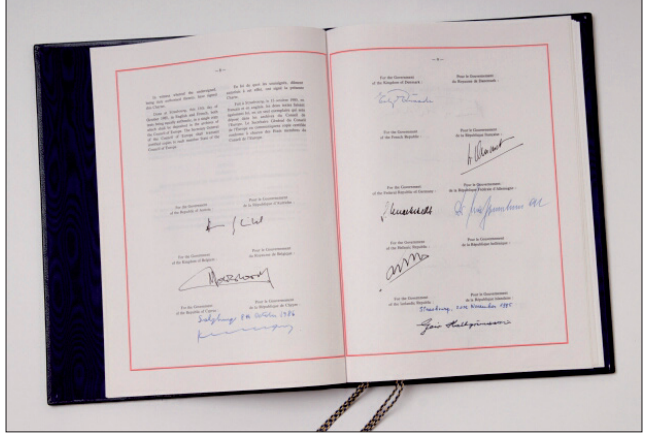 In witness whereof the undersigned,
being duly authorised thereto, have signed
this Charter.
Done at Strasbourg, this 15th day of
October 1985, in English and French, both
texts being equally authentic, in a single copy
which shall be deposited in the archives of
the Council of Europe. The Secretary General
of the Council of Europe shall transmit
certified copies to each member State of the
Council of Europe.
En foi de quoi, les soussignés, dûment
autorisés à cet effet, ont signé la présente
Charte.
Fait à Strasbourg, le 15 octobre 1985, en
français et en anglais, les deux textes faisant
également foi, en un seul exemplaire qui sera
déposé dans les archives du Conseil de
l'Europe. Le Secrétaire Général du Conseil
de l'Europe en communiquera copie certifiée
conforme à chacun des Etats membres du
Conseil de l'Europe.
For the Government
of the Republic of Austria :
Pour le Gouvernement
de la République d'Autriche :
For the Government
of the Kingdom of Belgium :
Pour le Gouvernement
du Royaume de Belgique :
For the Government
of the Republic of Cyprus :
Pour le Gouvernement
de la République de Chypre :
Salzburg 8th October 1986
For the Government
of the Kingdom of Denmark :
Pour le Gouvernement
du Royaume de Danemark :
For the Government
of the French Republic :
Pour le Gouvernement
de la République française :
For the Government
of the Federal Republic of Germany :
Pour le Gouvernement
de la République Fédérale d'Allemagne :
For the Government
of the Hellenic Republic :
Pour le Gouvernement
de la République hellénique :
For the Government
of the Icelandic Republic :
Pour le Gouvernement
de la République islandaise :
Strasbourg, 20th November 1985
Geir Hallgrímsson